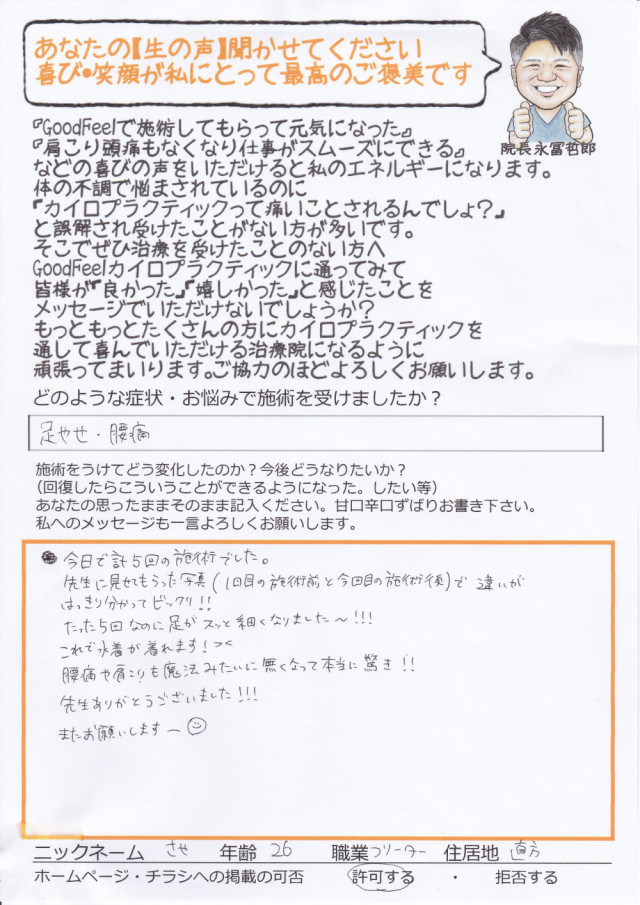 あなたの【生の声】聞かせてください
喜び・笑顔が私にとって最高のご褒美です
院長永冨哲郎
『GoodFeelで施術してもらって元気になった』
『肩こり頭痛もなくなり仕事がスムーズにできる』
などの喜びの声をいただけると私のエネルギーになります。
体の不調で悩まされているのに
「カイロプラクティックって痛いことされるんでしょ？」
と誤解され受けたことがない方が多いです。
そこでぜひ治療を受けたことのない方へ
GoodFeelカイロプラクティックに通ってみて
皆様が「良かった」「嬉しかった」と感じたことを
メッセージでいただけないでしょうか？
もっともっとたくさんの方にカイロプラクティックを
通して喜んでいただける治療院になるように
頑張ってまいります。ご協力のほどよろしくお願いします。
どのような症状・お悩みで施術を受けましたか？
足やせ・腰痛
施術をうけてどう変化したのか？今後どうなりたいか？
（回復したらこういうことができるようになった。したい等）
あなたの思ったままそのまま記入ください。甘口辛口ずばりお書き下さい。
私へのメッセージも一言よろしくお願いします。
今日で計5回の施術でした。
先生に見せてもらった写真(1回目の施術前と今回目の施術後)で違いが
はっきり分かってビックリ!!
たった5回なのに足がスッと細くなりました〜!!!
これで水着が着れます!><
腰痛や肩こりも魔法みたいに無くなって本当に驚き!!
先生ありがとうございました!!!
またお願いしますー
ニックネーム させ 年齢 26 職業 フリーター 住居地 直方
ホームページ・チラシへの掲載の可否 許可する ・ 拒否する